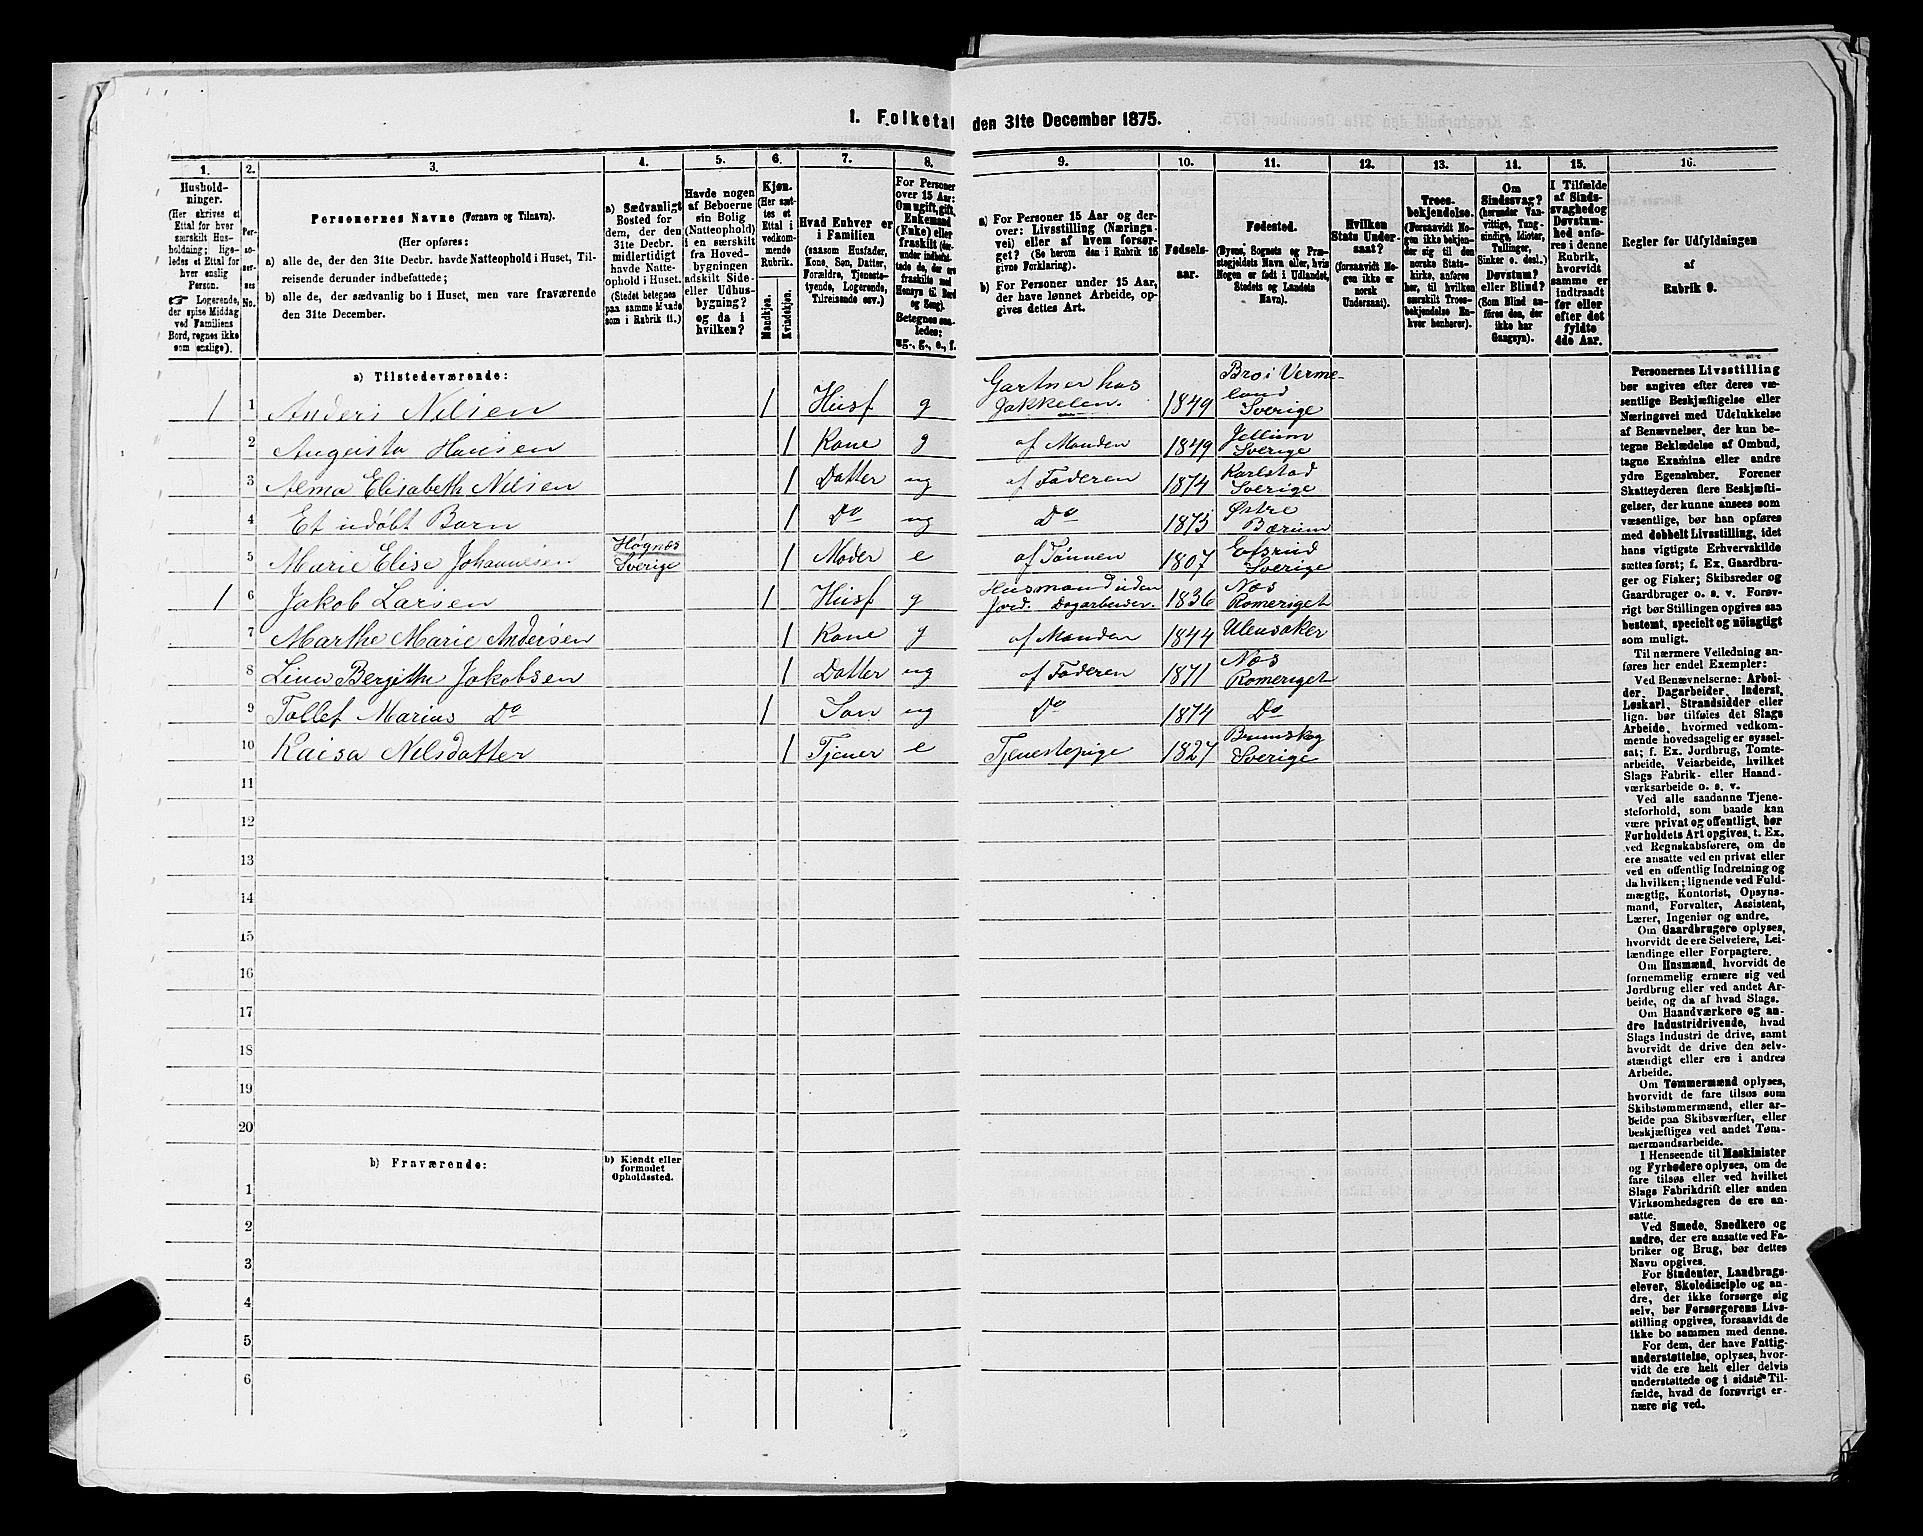 1. Folketal den 31te December 1875.
1.
2.
3.
4.
5.
6.
7.
8.
9.
10.
11.
12.
13.
14.
15.
16.
Husholdninger.
(Her skrives et Ettal for hver særskilt Husholdning; ligeledes et Ettal for hver enslig Person.
☞ Logerende, der spise Middag ved Familiens Bord, regnes ikke som enslige).
Personernes No.
Personernes Navne (Fornavn og Tilnavn).
(Her opføres:
a) alle de, der den 31te Decbr. havde Natteophold i Huset, Tilreisende derunder indbefattede;
b) alle de, der sædvanlig bo i Huset, men vare fraværende den 31te December.
a) Sædvanligt Bosted for dem, der den 31te Decbr. midlertidigt havde Natteophold i Huset.
(Stedet betegnes paa samme Maade som i Rubrik 11.)
Havde nogen af Beboerne sin Bolig (Natteophold) i en særskilt fra Hovedbygningen adskilt Side- eller Udhusbygning? og da i hvilken?
Kjøn.
(Her sættes et Ettal i vedkommende Rubrik.
Mandkjøn.
Kvindekjøn.
Hvad Enhver er i Familien
(saasom Husfader, Kone, Søn, Datter, Forældre, Tjenestetyende, Logerende, Tilreisende osv.)
For Personer over 15 Aar: Om ugift, gift, Enkemand (Enke) eller fraskilt (derunder indbefattede de, der ere fraskilte med Hensyn til Bord og Seng).
Betegnes saaledes: ug., g., e., f.
a) For Personer 15 Aar og derover: Livsstilling (Næringsvei) eller af hvem forsørget? (Se herom den i Rubrik 16 givne Forklaring).
b) For Personer under 15 Aar, der have lønnet Arbeide, opgives dettes Art.
Fødselsaar.
Fødested.
(Byens, Sognets og Præstegjeldets Navn eller, hvis Nogen er født i Udlandet, Stedets og Landets Navn).
Hvilken Stats Undersaat?
(forsaavidt Nogen ikke er norsk Undersaat).
Troesbekjendelse.
(Forsaavidt Nogen ikke bekjender sig til den norske Statskirke, anføres her, til hvilken særskilt Troesbekjendelse Enhver henhører).
Om Sindssvag? (herunder Vanvittige, Tungsindige, Idioter, Tullinger, Sinker o. desl.). Døvstum? eller Blind? (Som Blind anføres den, der ikke har Gangsyn).
I Tilfælde af Sindssvaghed og Døvstumhed anføres i denne Rubrik, hvorvidt samme er indtraadt før eller efter det fyldte 4de Aar.
Regler for Udfyldningen af Rubrik 9.
a) Tilstedeværende:
1 1 Anders Nilsen 1 Husf g Gartner hos Jakkelen. 1849 Bro i Vermeland Sverige
2 Augusta Hansen 1 Kone g af Manden 1849 Sverige
3 Alma Elisabeth Nilsen 1 Datter ug af Faderen 1874 Karlstad Sverige
4 Et udøbt Barn 1 Do ug Do 1875 Østre Bærum
5 Marie Elise Johannesen Høgnæs Sverige 1 Moder e af Sønnen 1807 Sverige
1 6 Jakob Larsen 1 Husf g Husmand uden Jord. Dagarbeider. 1836 Næs Romeriget
7 Marthe Marie Andersen 1 Kone g af Manden 1844 Ulensaker
8 Lina Bergithe Jakobsen 1 Datter ug af Faderen 1871 Næs Romeriget
9 Tollef Marius Do 1 Søn ug Do 1874 Do
10 Kaisa Nilsdatter 1 Tjener e Tjenestepige 1827 Brunskog Sverige
11
12
13
14
15
16
17
18
19
20
b) Fraværende:
b) Kjendt eller formodet Opholdssted.
1
2
3
4
5
6
Personernes Livsstilling
bør angives efter deres væ-
sentlige Beskjæftigelse eller
Næringsvei med Udelukkelse
af Benævnelser, der kun be-
tegne Beklædelse af Ombud,
tagne Examina eller andre
ydre Egenskaber. Forener
Skatteyderen flere Beskjæfti-
gelser, der kunne ansees som
væsentlige, bør han opføres
med dobbelt Livsstilling, idet
hans vigtigste Erhvervskilde
sættes først; f. Ex. Gaardbru-
ger og Fisker; Skibsreder og
Gaardbruger o. s. v. Forøv-
rigt bør Stillingen opgives saa
bestemt, specielt og nöiagtigt
som muligt.
Til nærmere Veiledning an-
føres her endel Exempler:
Ved Benævnelserne: Arbei-
der, Dagarbeider, Inderst,
Løskarl, Strandsidder eller
lign. bør tilføies det Slags
Arbeide, hvormed vedkom-
mende hovedsagelig er syssel-
sat; f. Ex. Jordbrug, Tomte-
arbeide, Veiarbeide, hvilket
Slags Fabrik- eller Haand-
værksarbeide o. s. v.
Ved alle saadanne Tjene-
steforhold, som baade kan
være privat og offentligt, bør
Forholdets Art opgives, t. Ex.
ved Regnskabsførere, om de
ere ansatte ved en privat eller
ved en offentlig Indretning og
da hvilken; lignende ved Fuld-
mægtig, Kontorist, Opsyns-
mand, Forvalter, Assistent,
Lærer, Ingeniør og andre.
Om Gaardbrugere oplyses,
hvorvidt de ere Selveiere, Lei-
lændinge eller Forpagtere.
Om Husmænd, hvorvidt de
fornemmelig ernære sig ved
Jordbrug eller ved andet Ar-
beide, og da af hvad Slags.
Om Haandværkere og an-
dre Industridrivende, hvad
Slags Industri de drive, samt
hvorvidt de drive den selv-
stændigt eller ere i andres
Arbeide.
Om Tømmermænd oplyses,
hvorvidt de fare tilsøs som
Skibstømmermænd, eller ar-
beide paa Skibsværfter, eller
beskjæftiges ved andet Tøm-
mermandsarbeide.
I Henseende til Maskinister
og Fyrbødere oplyses, om de
fare tilsøs eller ved hvilket
Slags Fabrikdrift eller anden
Virksomhedsgren de ere an-
satte.
Ved Smede, Snedkere og
andre, der ere ansatte ved Fa-
briker og Brug, bør dettes
Navn opgives.
For Studenter, Landbrugs-
elever, Skoledisciple og an-
dre, der ikke forsørge sig
selv, bør Forsørgerens Livs-
stilling opgives, forsaavidt de
ikke bo sammen med denne.
For dem, der have Fattig-
understøttelse, oplyses, hvor-
vidt de ere helt eller delvis
understøttede og i sidste Til-
fælde, hvad de forøvrigt er-
nære sig ved.